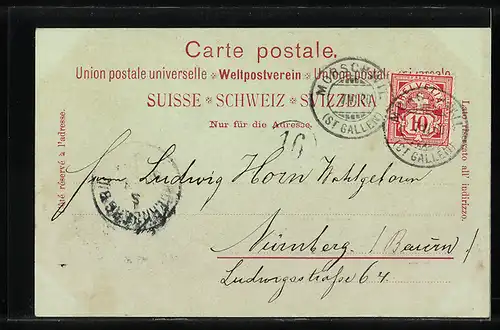 Carte postale.
Union postale universelle * Weltpostverein * Unione postale universale
SUISSE * SCHWEIZ * SVIZZERA
Nur für die Adresse.
Côté réservé à l'adresse.
Lato riservato all' indirizzo.
MÖRSCHWIL
(ST GALLEN)
HELVETIA
10
(ST GALLEN)
16
Herrn Ludwig Horn
Nürnberg. (Bayern)
Ludwigsstraße 64.